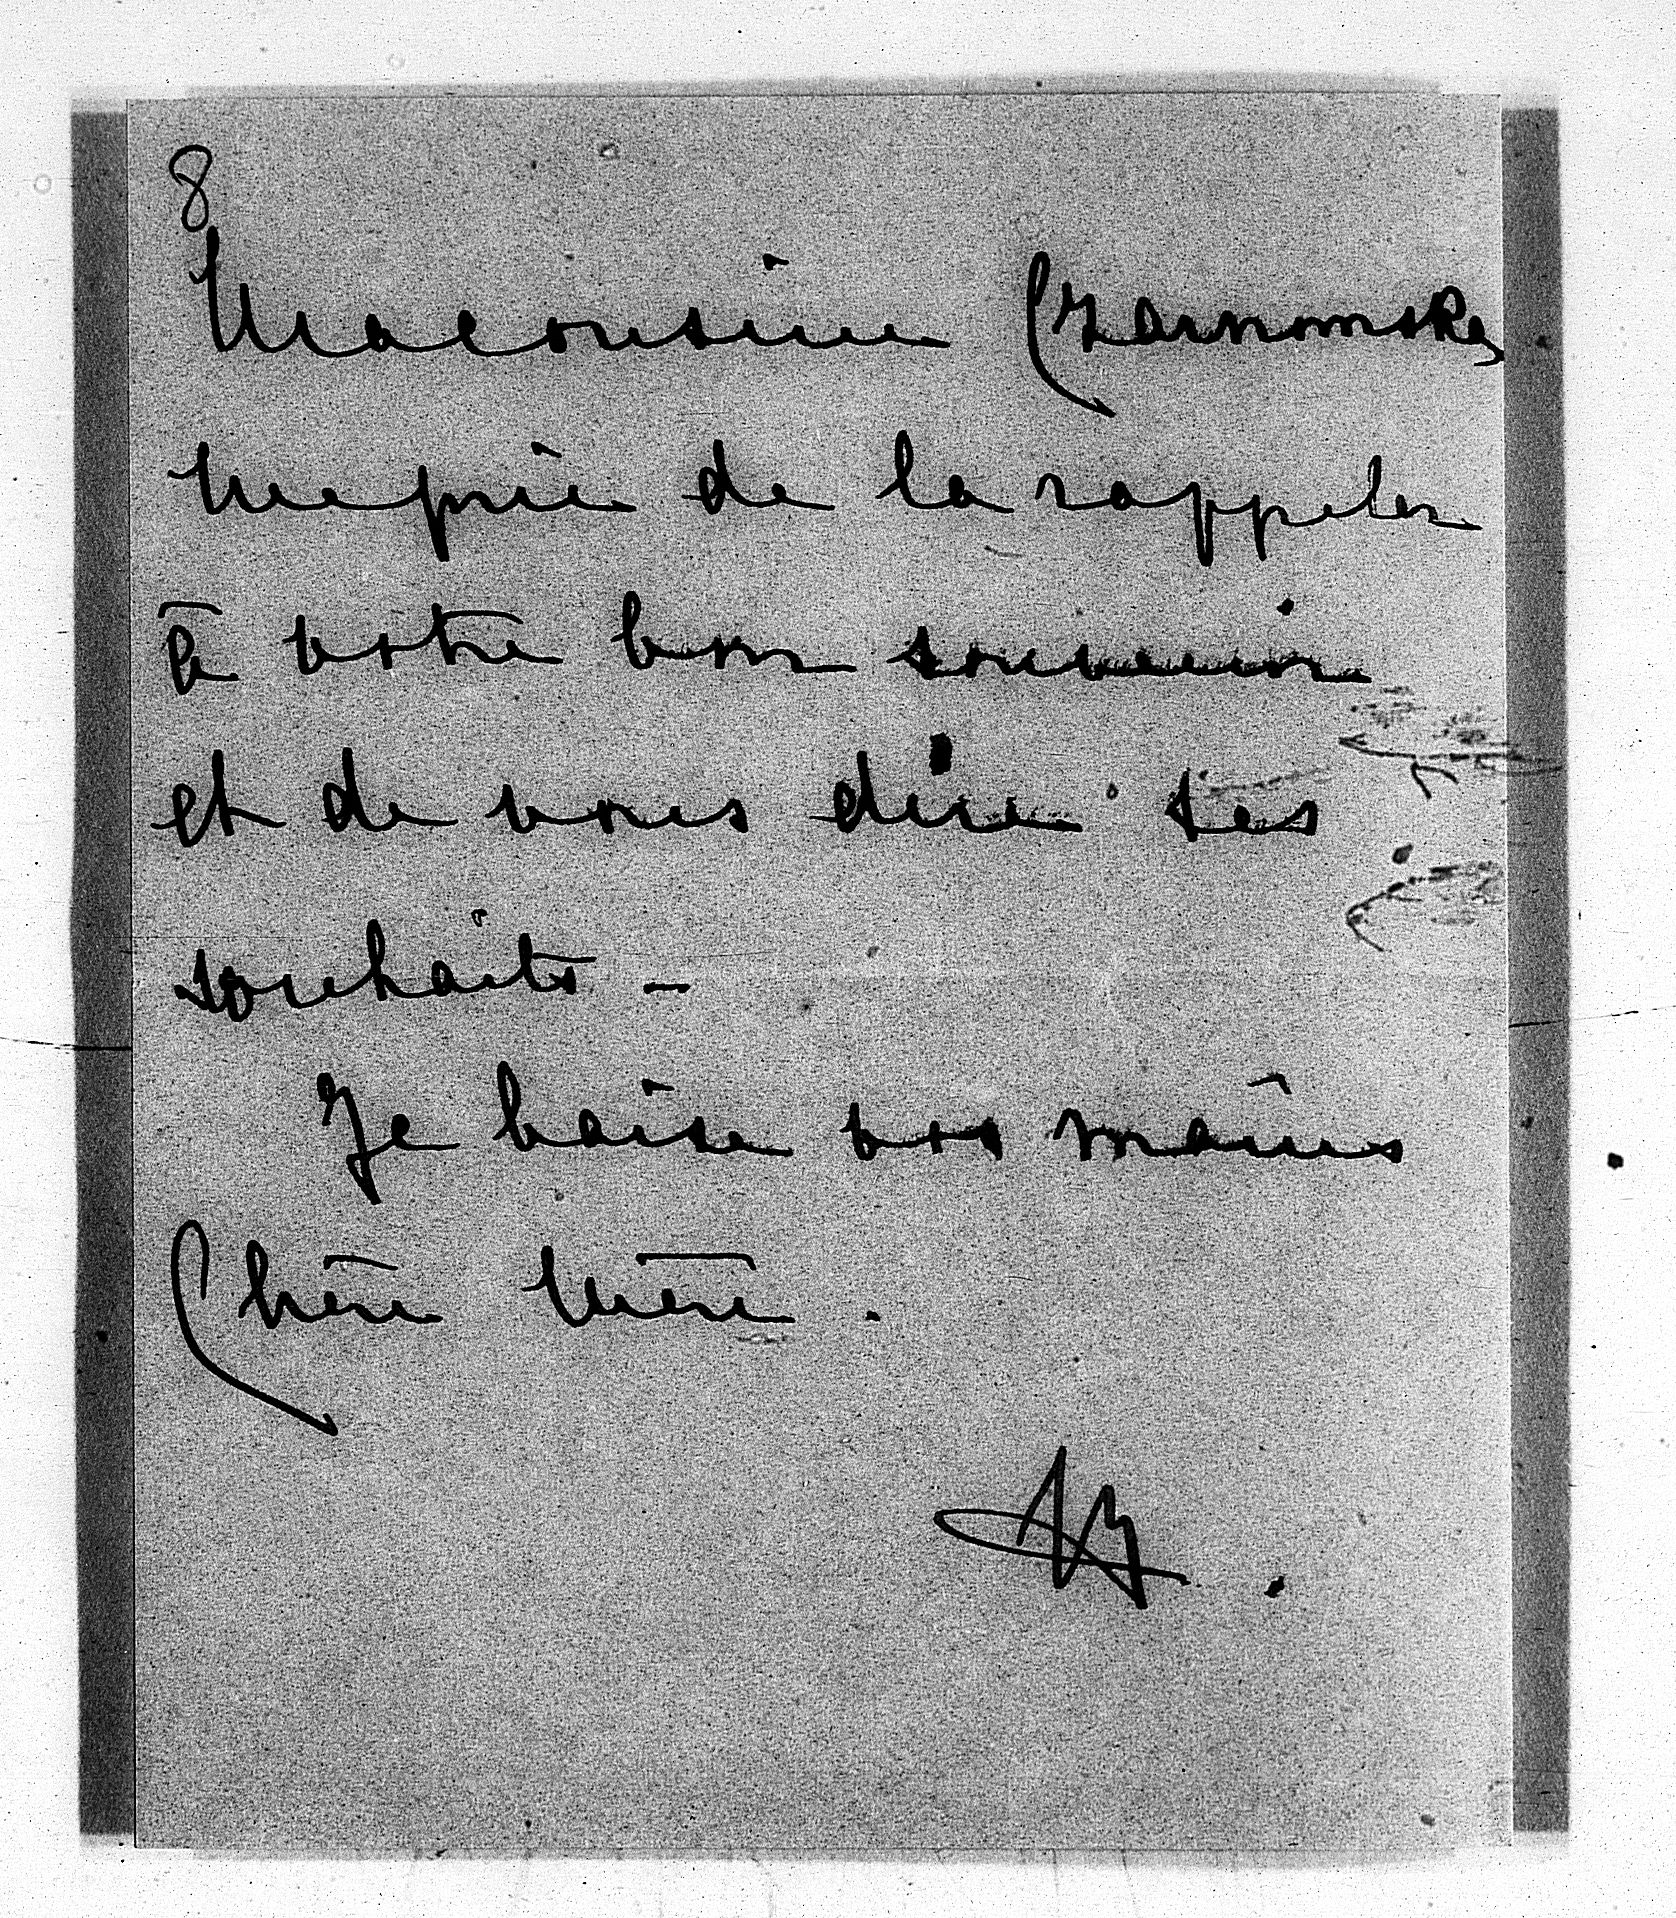 8
Ma cousine Czarnomska
me prie de la rappeler
à votre bon souvenir
et de vous dire ses
souhaits –
Je baise vos mains
Chère Mère .